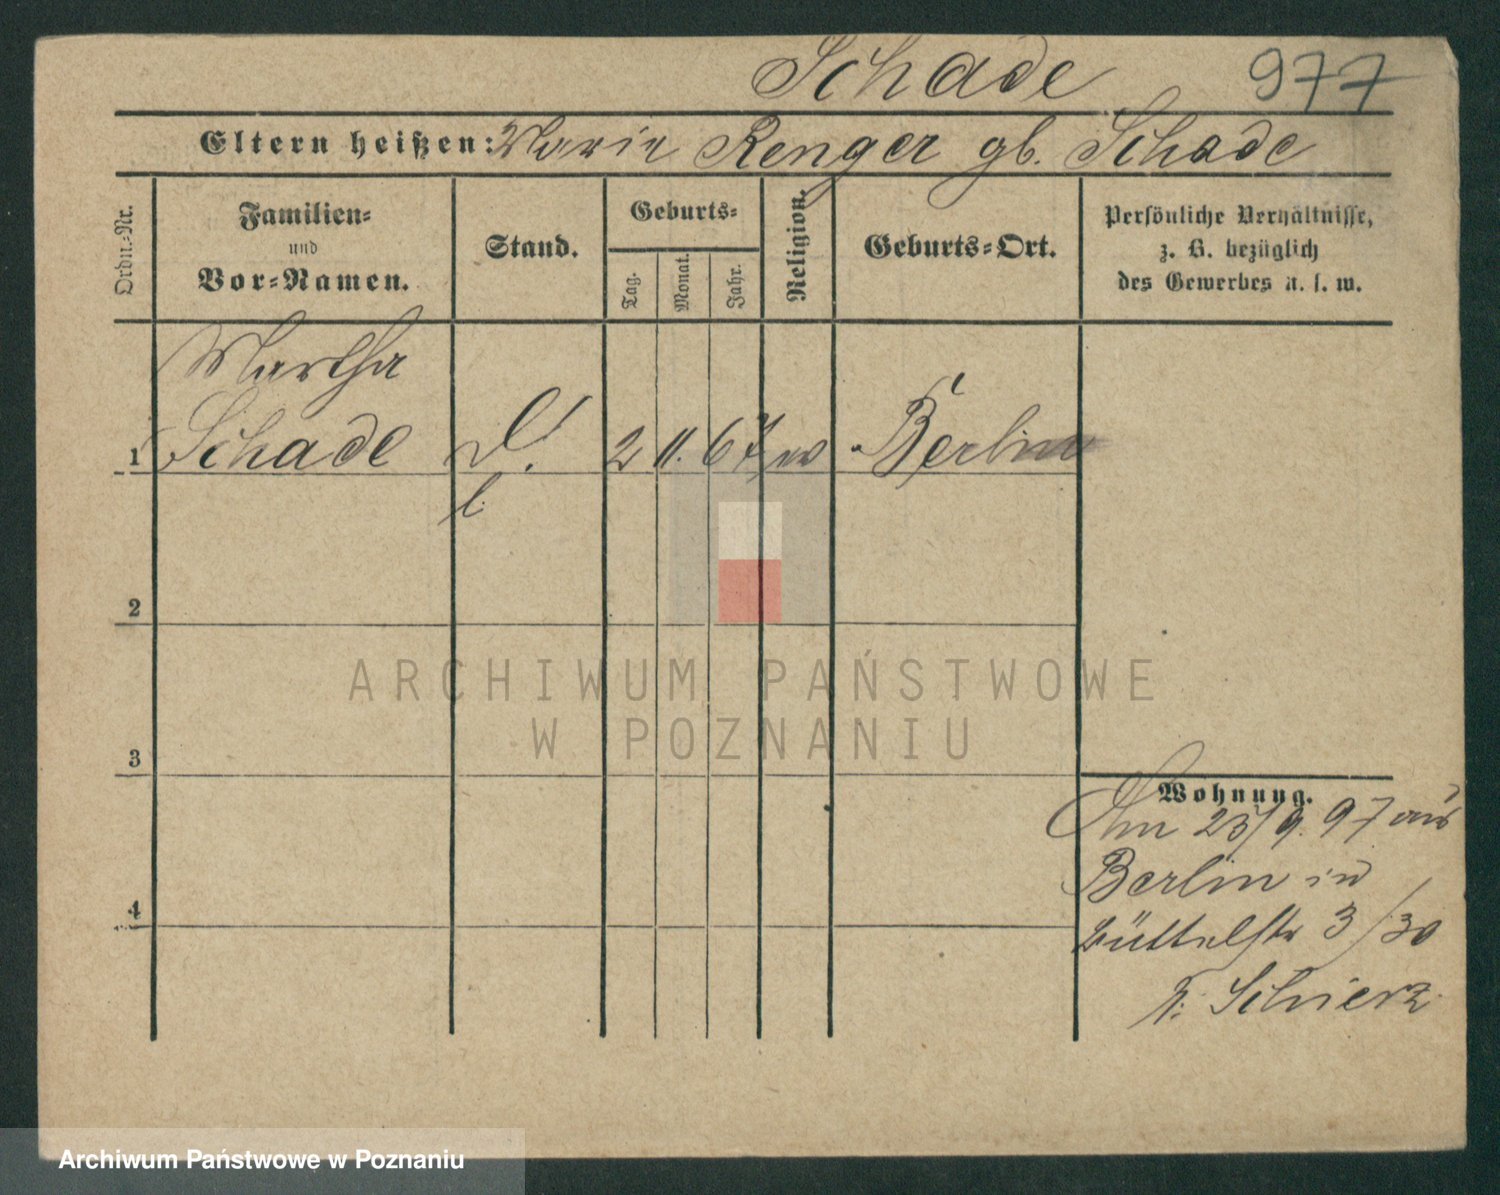 Schade 977
Eltern heißen: Marie Renger gb. Schade
Ordn.-Nr.
Familien-
und
Vor-Namen.
Stand.
Geburts-
Tag.
Monat.
Jahr.
Religion.
Geburts-Ort.
Persönliche Verhältnisse,
z. B. bezüglich
des Gewerbes u. s. w.
Martha
1 Schade 2 11. 67 Berlin
l.
2
3
4
Wohnung.
Am 23/9. 97 aus
Berlin in
Büttelstr 3/30
b. Schierz
ARCHIWUM PAŃSTWOWE
W POZNANIU
Archiwum Państwowe w Poznaniu